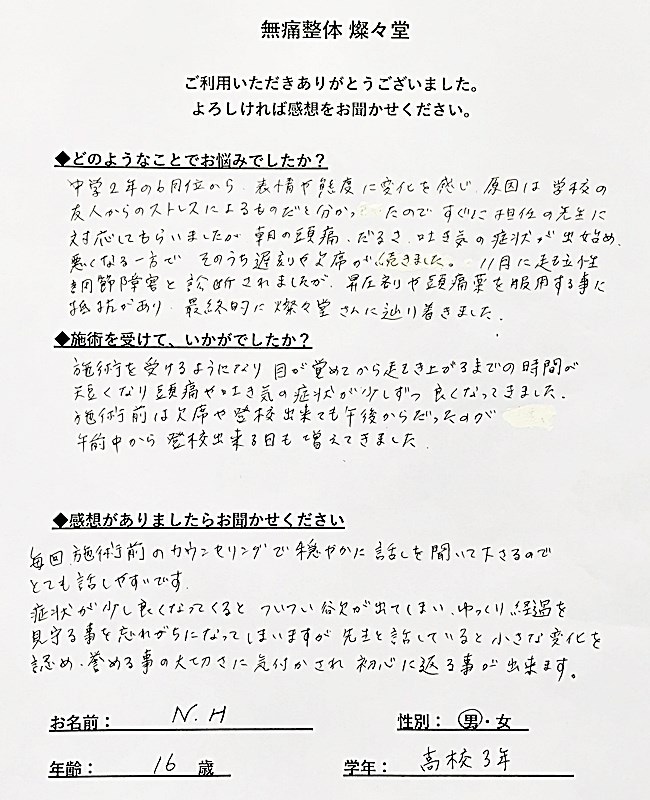 無痛整体 燦々堂
ご利用いただきありがとうございました。
よろしければ感想をお聞かせください。
◆どのようなことでお悩みでしたか？
中学2年の6月位から 表情や態度に変化を感じ 原因は 学校の
友人からのストレスによるものだと分かったので すぐに担任の先生に
対応してもらいましたが 朝の頭痛、だるさ、吐き気の症状が出始め、
悪くなる一方で そのうち遅刻や欠席が続きました。 11月に起立性
調節障害と診断されましたが、昇圧剤や頭痛薬を服用する事に
抵抗があり、最終的に 燦々堂さんに辿り着きました。
◆施術を受けて、いかがでしたか？
施術を受けるようになり 目が覚めてから起き上がるまでの時間が
短くなり頭痛や吐き気の症状が少しずつ 良くなってきました。
施術前は欠席や登校出来ても午後からだったのが
午前中から 登校出来る日も 増えてきました。
◆感想がありましたらお聞かせください
毎回 施術前のカウンセリングで 穏やかに 話しを聞いて下さるので
とても話しやすいです。
症状が少し良くなってくると ついつい欲が出てしまい、ゆっくり経過を
見守る事を忘れがちになってしまいますが 先生と話していると 小さな変化を
認め、誉める事の大切さに気付かされ 初心に返る事が出来ます。
お名前： N.H 性別： 男・女
年齢： 16 歳 学年： 高校3年